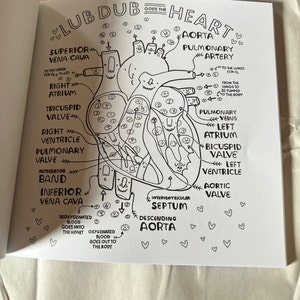 LUB DUB GOES THE HEART
SUPERIOR
VENA CAVA
AORTA
PULMONARY
ARTERY
TO THE LUNGS
FOR O₂
TO THE LUNGS
FOR O₂
RIGHT
ATRIUM
FROM THE
LUNGS TO
BE PUMPED
TO THE BODY
TRICUSPID
VALVE
PULMONARY
VEINS
LEFT
ATRIUM
RIGHT
VENTRICLE
BICUSPID
VALVE
PULMONARY
VALVE
LEFT
VENTRICLE
MODERATOR
BAND
AORTIC
VALVE
INFERIOR
VENA CAVA
INTERVENTRICULAR
SEPTUM
DEOXYGENATED
BLOOD
GOES INTO
THE HEART
OXYGENATED
BLOOD
GOES OUT TO
THE BODY
DESCENDING
AORTA